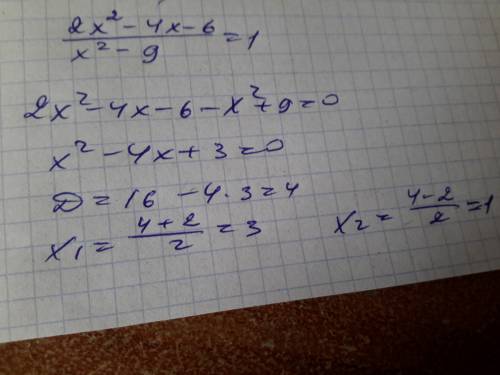 (2x² - 4x - 6) / (x² - 9) = 1
2x² - 4x - 6 - x² + 9 = 0
x² - 4x + 3 = 0
D = 16 - 4 · 3 = 4
x₁ = (4 + 2) / 2 = 3    x₂ = (4 - 2) / 2 = 1